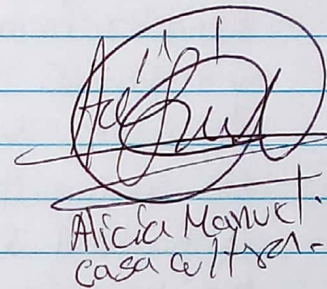 Alicia Manuel.
Casa cultural